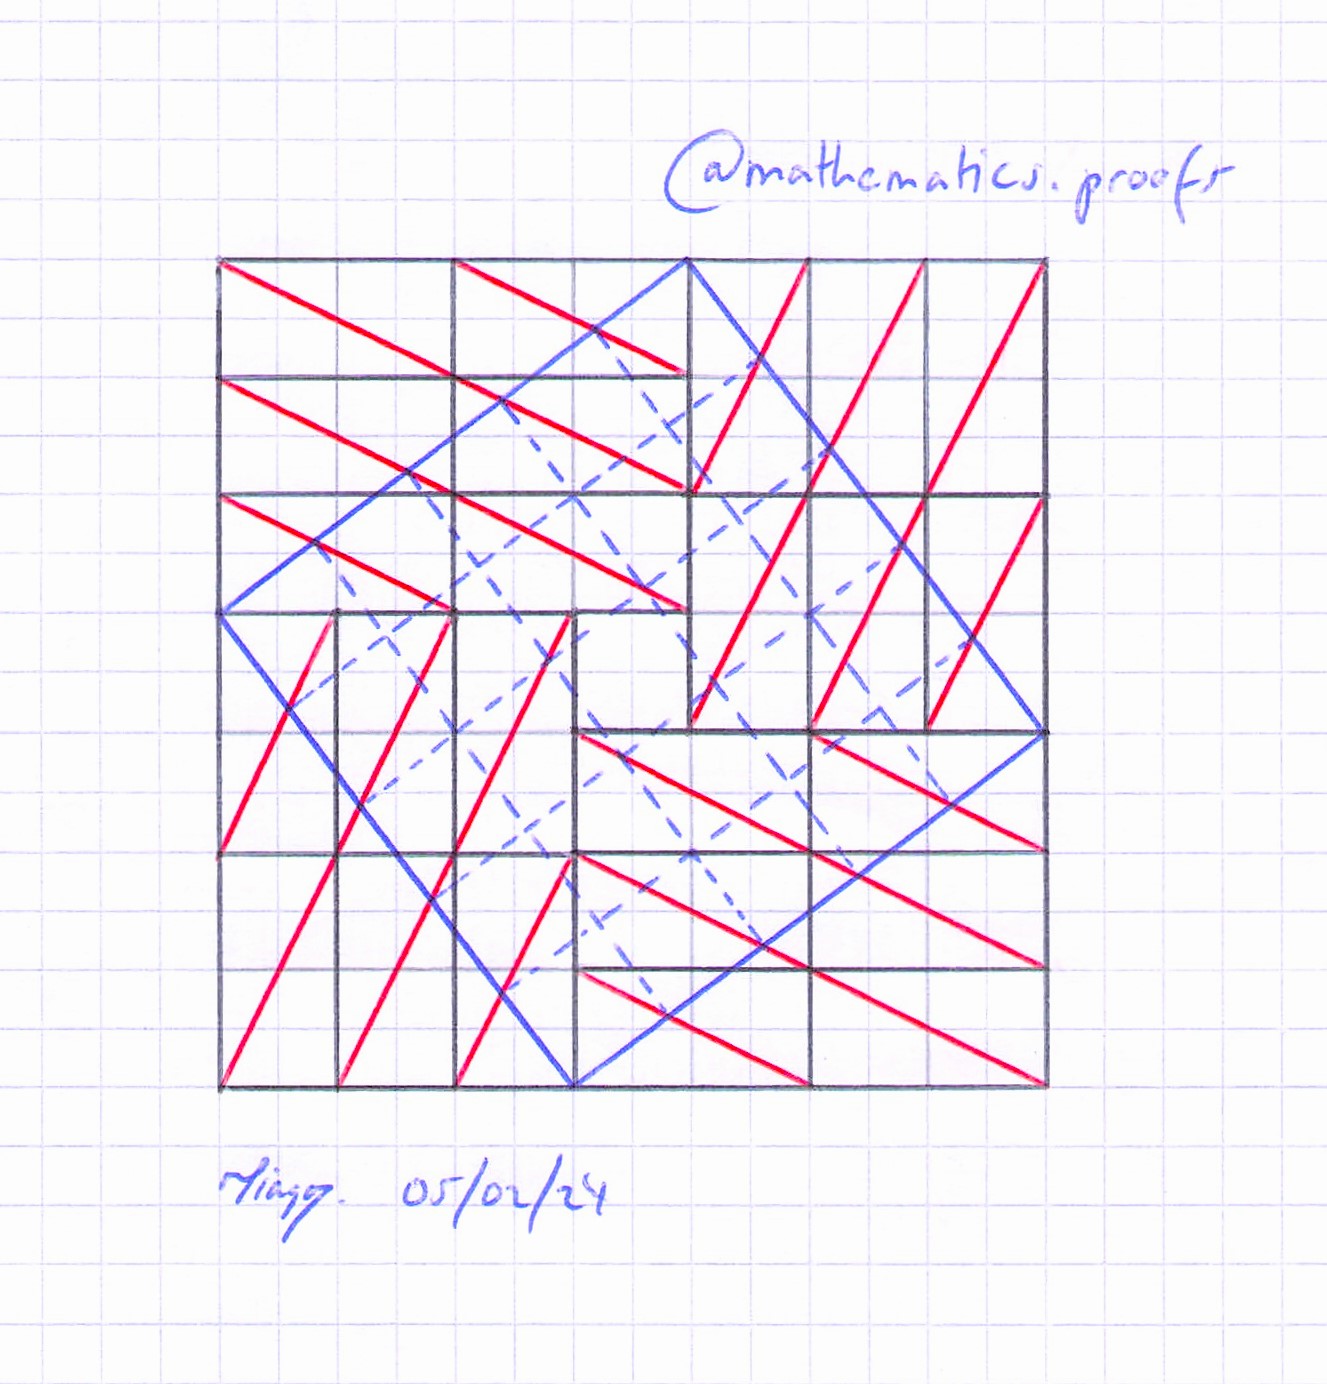 @mathematics.proofs
05/02/24